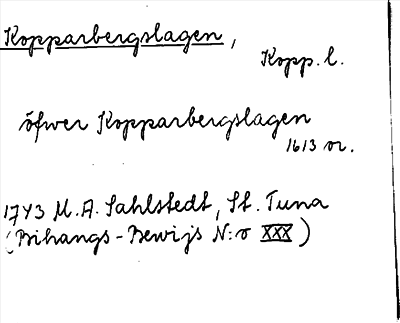 Kopparbergslagen,
Kopp. l.
öfwer Kopparbergslagen
1613 or.
1743 M. A. Sahlstedt, St. Tuna
(Bihangs-Bewijs N:o XXX)